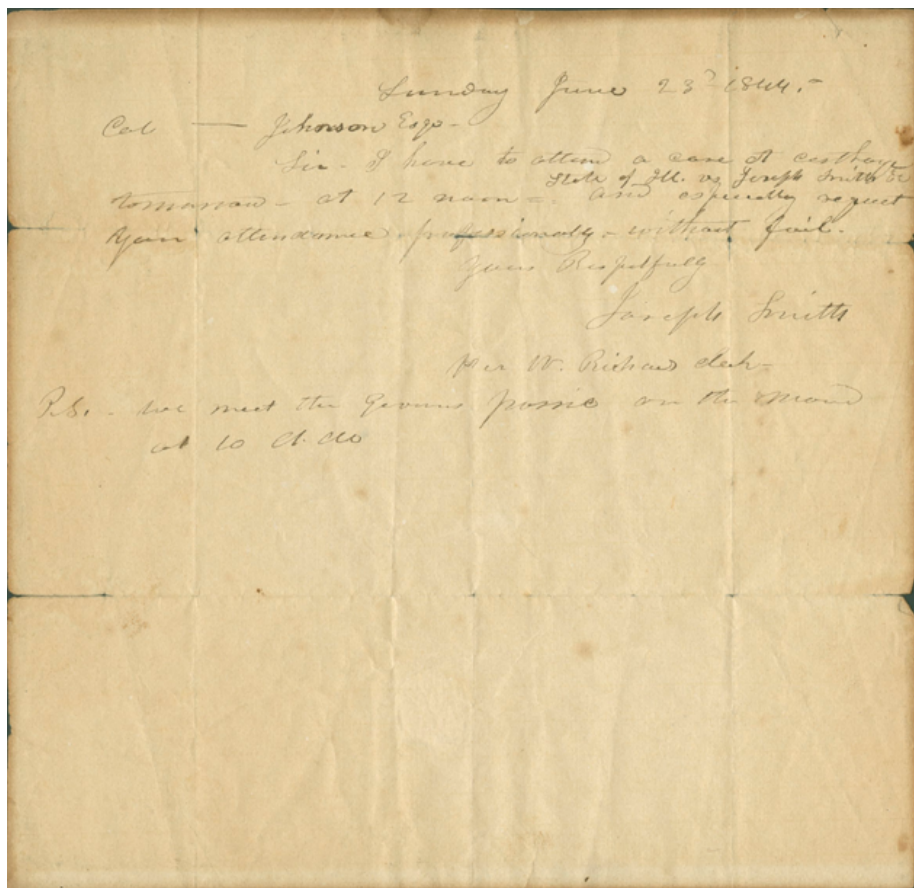 Sunday June 23d 1844.-
Col — Johnson Esqr-
Sir- I have to attend a case at carthage
State of Ill. vs Joseph Smith &c
tomorrow - at 12 noon =. and especially request
your attendance. professionally - without fail.
yours Respetfully
Joseph Smith
Per W. Richards clerk-
P.S. - we meet the Governors possie on the Mound
at 10